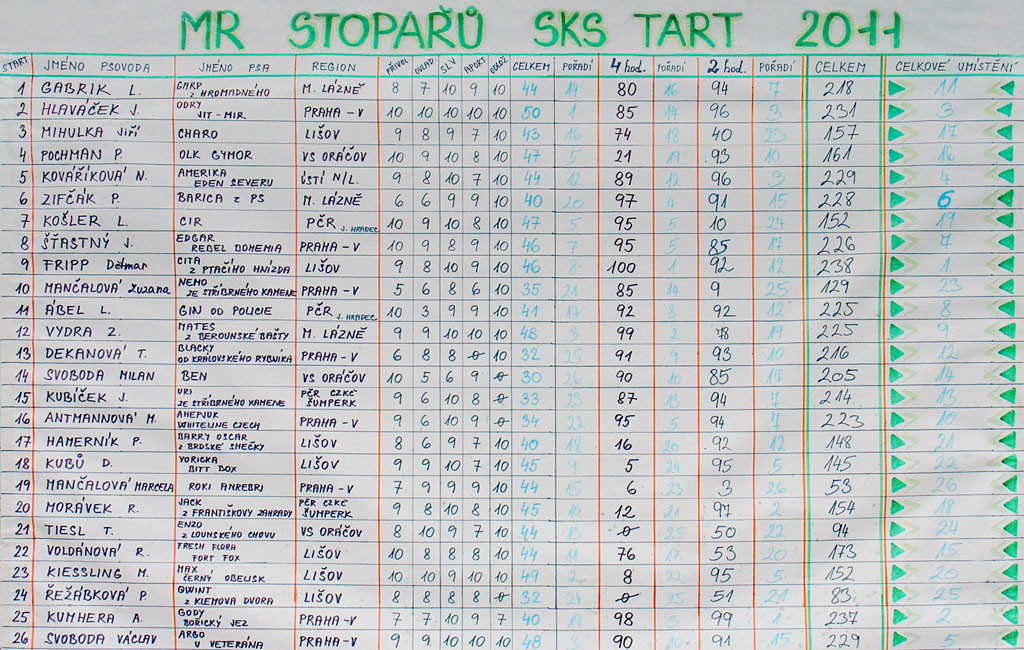 MR STOPAŘŮ SKS TART 2011
START JMÉNO PSOVODA JMÉNO PSA REGION PŘIVOL. OVLAD. SLV APORT ODLOŽ CELKEM POŘADÍ 4 hod. POŘADÍ 2 hod. POŘADÍ CELKEM CELKOVÉ UMÍSTĚNÍ
1 GABRIK L. GARP z HROMADNÉHO M. LÁZNĚ 8 7 10 9 10 44 14 80 16 94 7 218 11
2 HLAVÁČEK J. ODRY JIT-MIR PRAHA-V 10 10 10 10 10 50 1 85 14 96 3 231 3
3 MIHULKA Jiří CHARO LIŠOV 9 8 9 7 10 43 16 74 18 40 23 157 17
4 POCHMAN P. OLK GYMOR VS ORÁČOV 10 9 10 8 10 47 5 21 19 93 10 161 16
5 KOVÁŘÍKOVÁ N. AMERIKA EDEN SEVERU ÚSTÍ N/L. 9 8 10 7 10 44 12 89 12 96 3 229 4
6 ZIFČÁK P. BARICA z PS M. LÁZNĚ 6 6 9 9 10 40 20 97 4 91 15 228 6
7 KOŠLER L. CIR PČR J. HRADEC 10 9 10 8 10 47 5 95 5 10 24 152 19
8 ŠŤASTNÝ J. EDGAR REBEL BOHEMIA PRAHA-V 10 9 8 9 10 46 7 95 5 85 17 226 7
9 FRIPP Dětmar CITA z PTAČÍHO HNÍZDA LIŠOV 9 8 10 9 10 46 8 100 1 92 12 238 1
10 MANČALOVÁ Zuzana NEMO ZE STŘÍBRNÉHO KAMENE PRAHA-V 5 6 8 6 10 35 21 85 14 9 25 129 23
11 ÁBEL L. GIN OD POLICIE PČR J. HRADEC 10 3 9 9 10 41 17 92 8 92 12 225 8
12 VYDRA Z. MATES z BEROUNSKÉ BAŠTY M. LÁZNĚ 9 9 10 10 10 48 3 99 2 78 19 225 9
13 DEKANOVÁ T. BLACKY OD KRÁLOVSKÉHO RYBNÍKA PRAHA-V 6 8 8 0 10 32 25 91 9 93 10 216 12
14 SVOBODA MILAN BEN VS ORÁČOV 10 5 6 9 0 30 26 90 10 85 17 205 14
15 KUBÍČEK J. URI ZE STŘÍBRNÉHO KAMENE PČR CZKČ ŠUMPERK 9 6 10 8 0 33 23 87 13 94 7 214 13
16 ANTMANNOVÁ M. WHITELINE CZECH PRAHA-V 9 6 10 9 0 34 22 95 5 94 7 223 10
17 HAMERNÍK P. BARRY OSCAR z BRDSKÉ SMEČKY LIŠOV 8 6 9 7 10 40 18 16 20 92 12 148 21
18 KUBŮ D. YORICKA BITT BOX LIŠOV 9 9 10 7 10 45 9 5 24 95 5 145 22
19 MANČALOVÁ MARCELA ROKI ANREBRI PRAHA-V 7 9 9 9 10 44 15 6 23 3 26 53 26
20 MORÁVEK R. JACK z FRANTIŠKOVY ZAHRADY PČR CZKČ ŠUMPERK 9 8 10 8 10 45 10 12 21 97 2 154 18
21 TIESL T. ENZO z LOUNSKÉHO CHOVU VS ORÁČOV 8 10 9 7 10 44 13 0 25 50 22 94 24
22 VOLDÁNOVÁ R. FRESH FLORA FORT FOX LIŠOV 10 8 8 8 10 44 11 76 17 53 20 173 15
23 KIESSLING M. MAX ČERNÝ OBELISK LIŠOV 10 10 9 10 10 49 2 8 22 95 5 152 20
24 ŘEŽÁBKOVÁ P. QWINT z KLEMOVA DVORA LIŠOV 8 8 8 8 0 32 24 0 25 51 21 83 25
25 KUMHERA A. GODY BOŘICKÝ JEZ PRAHA-V 7 7 10 9 7 40 19 98 3 99 1 237 2
26 SVOBODA VÁCLAV ARGO U VETERÁNA PRAHA-V 9 9 10 10 10 48 3 90 10 91 15 229 5